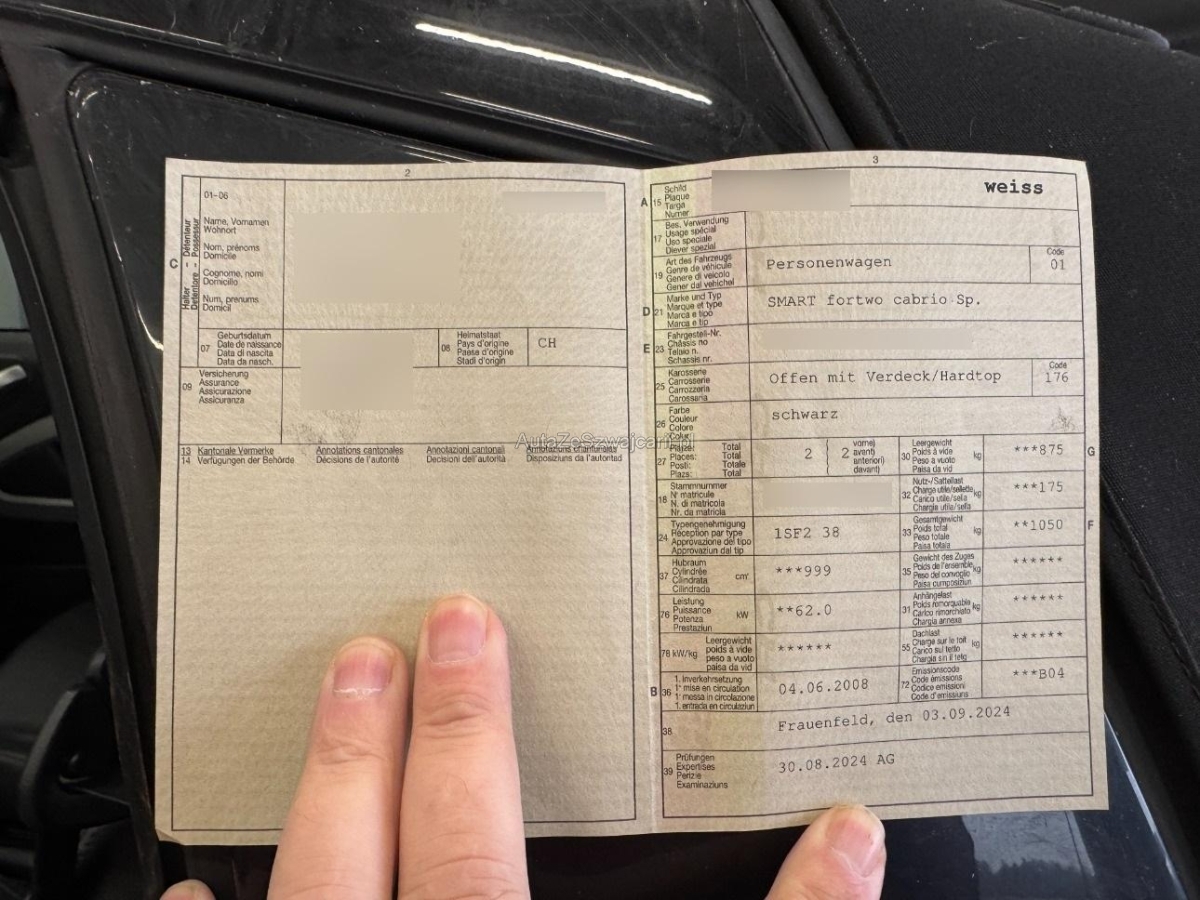 2
01-06
Name, Vornamen
Wohnort
Nom, prénoms
Domicile
Cognome, nomi
Domicilio
Num, prenums
Domicil
C
Halter - Détenteur
Detentore - Possessur
07
Geburtsdatum
Date de naissance
Data di nascita
Data da nasch.
08
Heimatstaat
Pays d'origine
Paese d'origine
Stadi d'origin
CH
09
Versicherung
Assurance
Assicurazione
Assicuranza
13 Kantonale Vermerke Annotations cantonales Annotazioni cantonali Annotaziuns chantunalas
14 Verfügungen der Behörde Décisions de l'autorité Decisioni dell'autorità Disposiziuns da l'autoritad
AutaZeSzwajcarii.pl
3
A 15
Schild
Plaque
Targa
Numer
weiss
17
Bes. Verwendung
Usage spécial
Uso speciale
Diever spezial
19
Art des Fahrzeugs
Genre de véhicule
Genere di veicolo
Gener dal vehichel
Personenwagen
Code
01
D 21
Marke und Typ
Marque et type
Marca e tipo
Marca e tip
SMART fortwo cabrio Sp.
E 23
Fahrgestell-Nr.
Châssis no
Telaio n.
Schassis nr.
25
Karosserie
Carrosserie
Carrozzeria
Carossaria
Offen mit Verdeck/Hardtop
Code
176
26
Farbe
Couleur
Colore
Colur
schwarz
27
Plätze: Total
Places: Total
Posti: Totale
Plazs: Total
2
2
vorne)
avant)
anteriori)
davant)
30
Leergewicht
Poids à vide
Peso a vuoto
Paisa da vid
kg
***875
G
18
Stammnummer
N° matricule
N. di matricola
Nr. da matricla
32
Nutz-/Sattellast
Charge utile/sellette
Carico utile/sella
Chargia utile/sella
kg
***175
24
Typengenehmigung
Réception par type
Approvazione del tipo
Approvaziun dal tip
1SF2 38
33
Gesamtgewicht
Poids total
Peso totale
Paisa totala
kg
**1050
F
37
Hubraum
Cylindrée
Cilindrata
Cilindrada
cm³
***999
35
Gewicht des Zuges
Poids de l'ensemble
Peso del convoglio
Paisa cumposiziun
kg
******
76
Leistung
Puissance
Potenza
Prestaziun
kW
**62.0
31
Anhängelast
Poids remorquable
Carico rimorchiato
Chargia annexa
kg
******
78 kW/kg
Leergewicht
poids à vide
peso a vuoto
paisa da vid
******
55
Dachlast
Charge sur le toit
Carico sul tetto
Chargia sin il tetg
kg
******
B 36
1. Inverkehrsetzung
1re mise en circulation
1a messa in circolazione
1. entrada en circulaziun
04.06.2008
72
Emissionscode
Code émissions
Codice emissioni
Code d'emissiuns
***B04
38
Frauenfeld, den 03.09.2024
39
Prüfungen
Expertises
Perizie
Examinaziuns
30.08.2024 AG